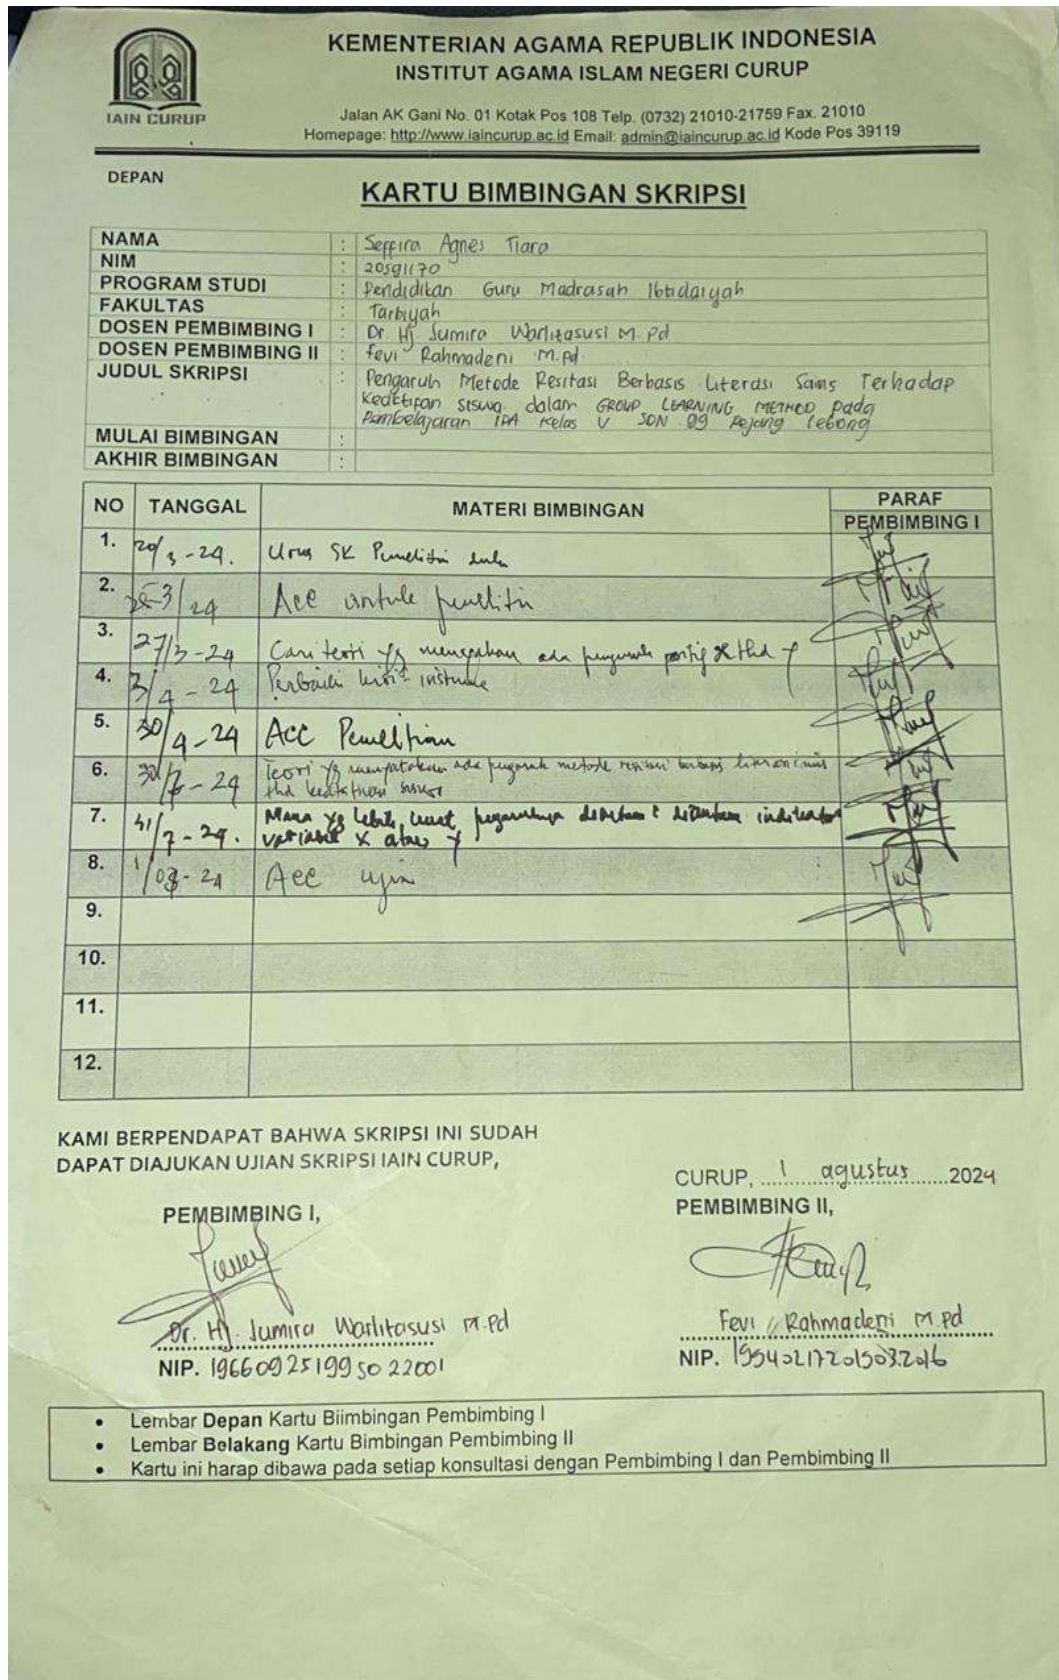 KEMENTERIAN AGAMA REPUBLIK INDONESIA
INSTITUT AGAMA ISLAM NEGERI CURUP
IAIN CURUP
Jalan AK Gani No. 01 Kotak Pos 108 Telp. (0732) 21010-21759 Fax. 21010
Homepage: http://www.iaincurup.ac.id Email: admin@iaincurup.ac.id Kode Pos 39119
DEPAN
KARTU BIMBINGAN SKRIPSI
NAMA : Seffira Agnes Tiara
NIM : 20591170
PROGRAM STUDI : Pendidikan Guru Madrasah Ibtidaiyah
FAKULTAS : Tarbiyah
DOSEN PEMBIMBING I : Dr Hj Jumira Warlitasusi M.Pd
DOSEN PEMBIMBING II : Fevi Rahmadeni M.Pd
JUDUL SKRIPSI : Pengaruh Metode Resitasi Berbasis Literasi Sains Terhadap
Keaktifan siswa dalam GROUP LEARNING METHOD pada
Pembelajaran IPA Kelas V SDN 09 Rejang Lebong
MULAI BIMBINGAN :
AKHIR BIMBINGAN :
NO TANGGAL MATERI BIMBINGAN PARAF
PEMBIMBING I
1. 20/3-24. Urus SK Penelitian dulu
2. 25-3/24 Acc untuk penelitin
3. 27/3-24 Cari teori yg mengatakan ada pengaruh positif X thd Y
4. 3/4-24 Perbaiki kisi² instrumen
5. 30/4-24 Acc Penelitian
6. 30/7-24 Teori yg menyatakan ada pengaruh metode resitasi berbasis literasi sains
thd keaktifan siswa
7. 31/7-24. Mana yg lebih kuat pengaruhnya diantara indikator
variabel X atau Y
8. 1/08-24 Acc ujian
9.
10.
11.
12.
KAMI BERPENDAPAT BAHWA SKRIPSI INI SUDAH
DAPAT DIAJUKAN UJIAN SKRIPSI IAIN CURUP,
CURUP, 1 agustus 2024
PEMBIMBING I,
PEMBIMBING II,
Dr. Hj. Jumira Warlitasusi M.Pd
NIP. 196609251995022001
Fevi Rahmadeni M.Pd
NIP. 199402172015032016
• Lembar Depan Kartu Biimbingan Pembimbing I
• Lembar Belakang Kartu Bimbingan Pembimbing II
• Kartu ini harap dibawa pada setiap konsultasi dengan Pembimbing I dan Pembimbing II